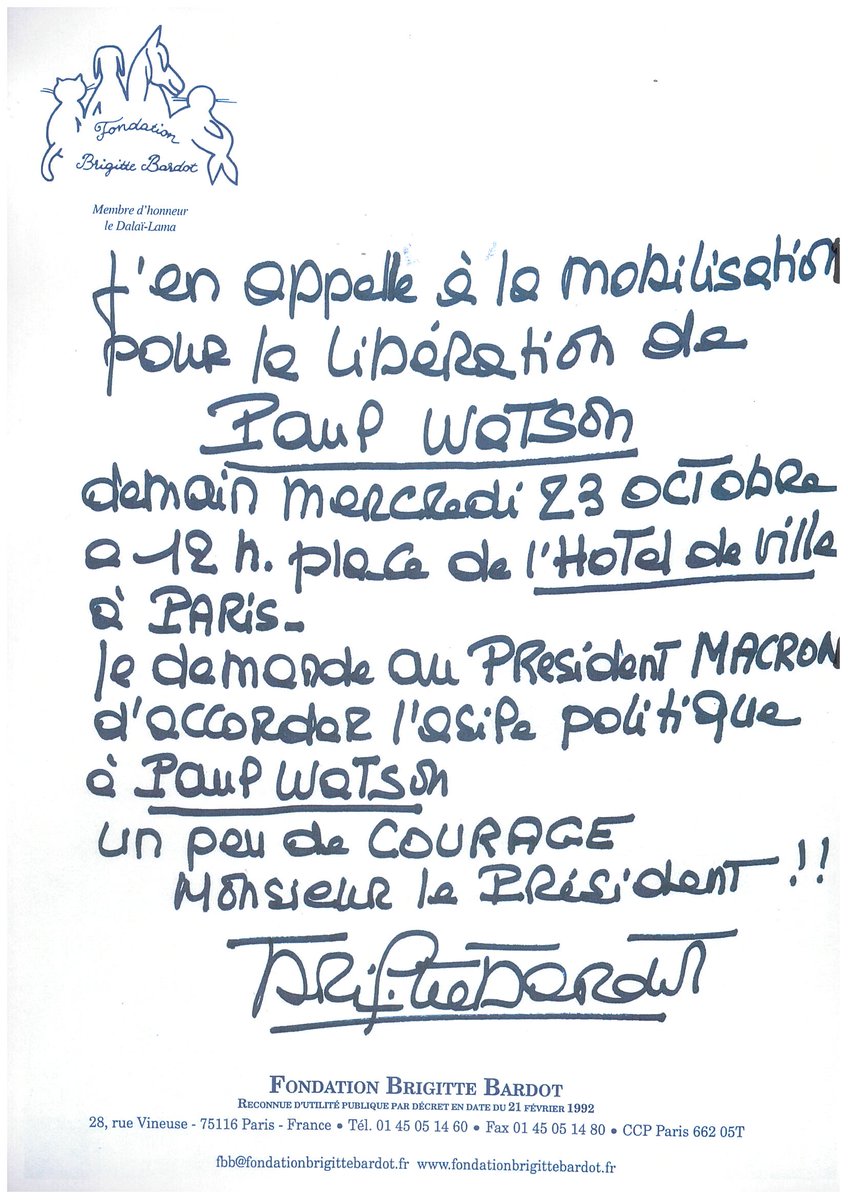 Fondation
Brigitte Bardot
Membre d'honneur
le Dalaï-Lama
J'en appelle à la mobilisation
pour la libération de
Paul Watson
demain mercredi 23 OCTOBRE
a 12 h. place de l'Hotel de Ville
à PARis_
Je demande au PResident MACRON
d'accorder l'asile politique
à Paul Watson
un peu de COURAGE
Monsieur le Président !!
Brigitte Bardot
FONDATION BRIGITTE BARDOT
RECONNUE D'UTILITÉ PUBLIQUE PAR DÉCRET EN DATE DU 21 FÉVRIER 1992
28, rue Vineuse - 75116 Paris - France • Tél. 01 45 05 14 60 • Fax 01 45 05 14 80 • CCP Paris 662 05T
fbb@fondationbrigittebardot.fr www.fondationbrigittebardot.fr